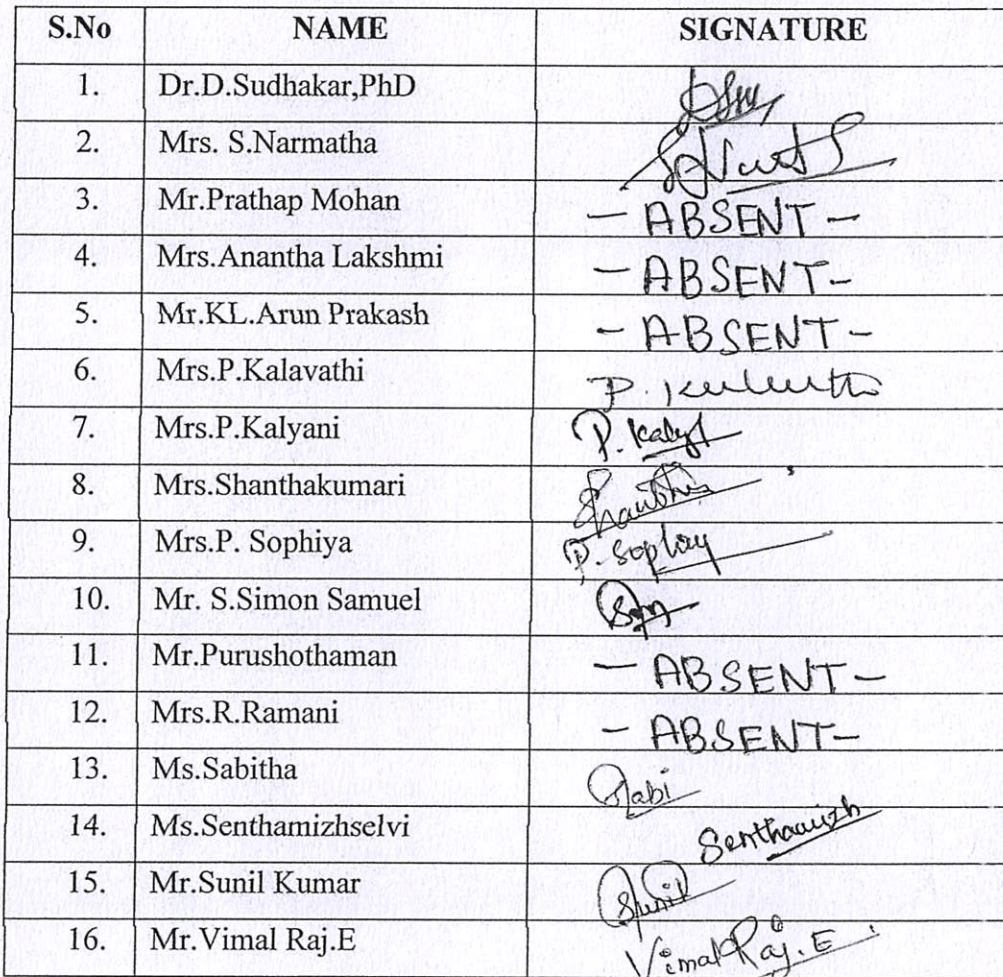 S.No NAME SIGNATURE
1. Dr.D.Sudhakar,PhD
2. Mrs. S.Narmatha
3. Mr.Prathap Mohan - ABSENT -
4. Mrs.Anantha Lakshmi - ABSENT -
5. Mr.KL.Arun Prakash - ABSENT -
6. Mrs.P.Kalavathi P.
7. Mrs.P.Kalyani P.
8. Mrs.Shanthakumari
9. Mrs.P. Sophiya P.
10. Mr. S.Simon Samuel
11. Mr.Purushothaman - ABSENT -
12. Mrs.R.Ramani - ABSENT -
13. Ms.Sabitha Sabi
14. Ms.Senthamizhselvi Senthamizh
15. Mr.Sunil Kumar Sunil
16. Mr.Vimal Raj.E Vimal Raj. E